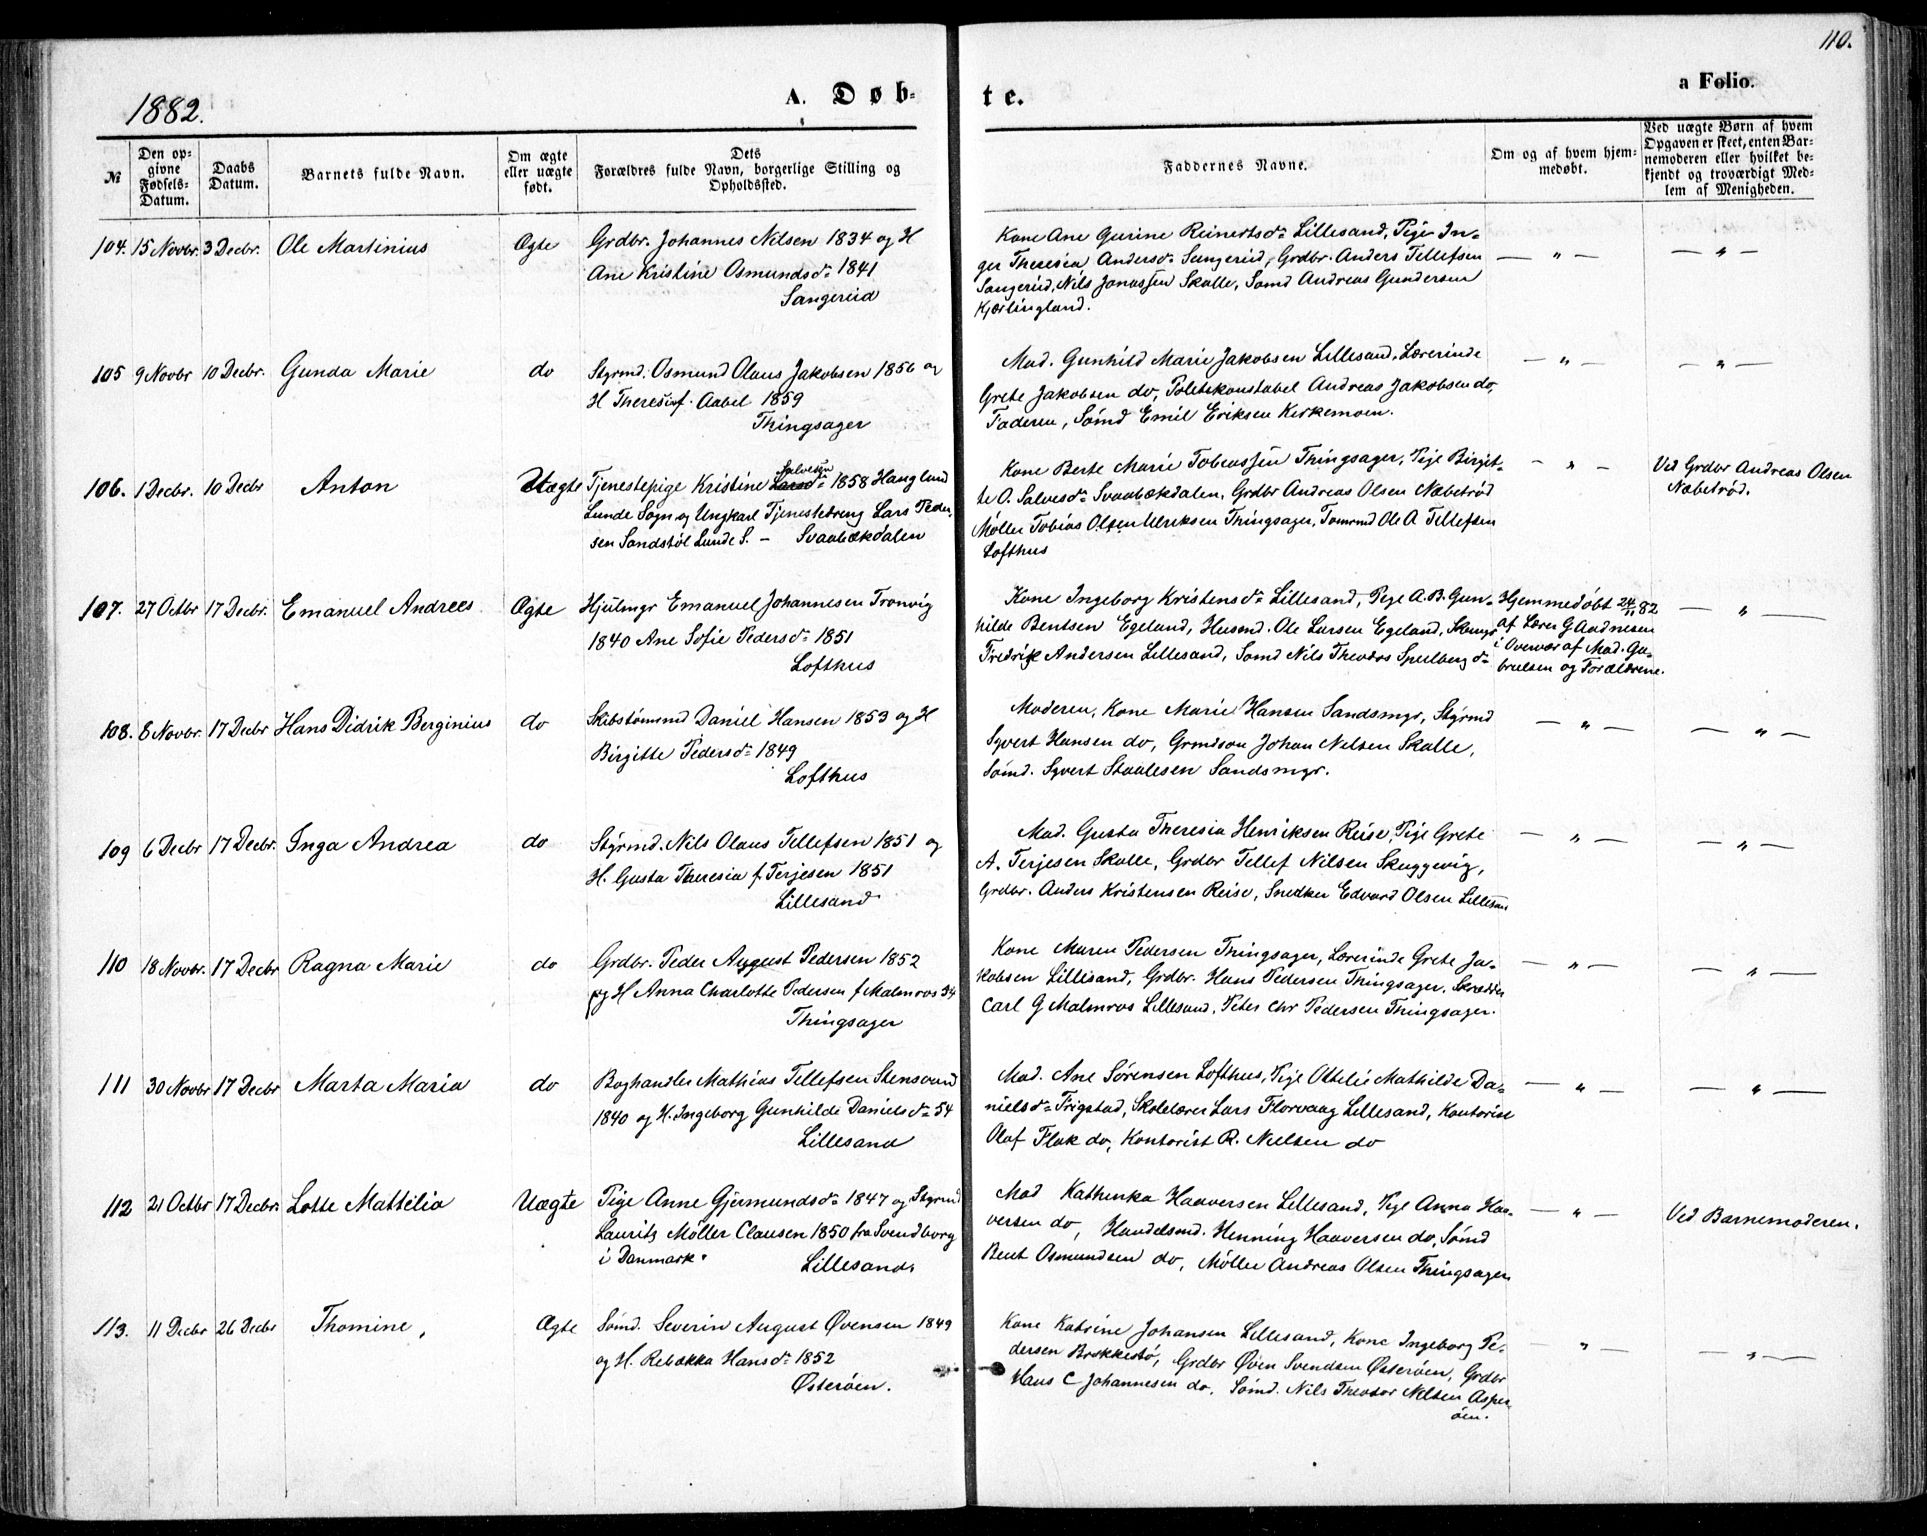 110.
1882.
A. Døb-
te.
a Folio.
№
Den op-
givne
Fødsels-
Datum.
Daabs
Datum.
Barnets fulde Navn.
Om ægte
eller uægte
født.
Dets
Forældres fulde Navn, borgerlige Stilling og
Opholdssted.
Faddernes Navne.
Om og af hvem hjem-
medøbt.
Ved uægte Børn af hvem
Opgaven er skeet, enten Bar-
nemoderen eller hvilket be-
kjendt og troværdigt Med-
lem af Menigheden.
104. 15 Novbr. 3 Decbr. Ole Martinius Ægte Grdbr. Johannes Nilsen 1834 og H
Ane Kristine Osmundsd. 1841
Sangereid
Kone Ane Gurine Reinertsd. Lillesand, Pige In-
ger Theresia Andersd. Sangereid, Grdbr. Anders Tellefsen
Sangereid, Nils Jonassen Skalle, Sømd Andreas Gundersen
Kjærlingland.
— " — — " —
105 9 Novbr 10 Decbr. Gunda Marie do Styrmd. Osmund Olaus Jakobsen 1856 og
H Theresia f. Aabel 1859
Thingsager
Mad. Gunhild Marie Jakobsen Lillesand, Lærerinde
Grete Jakobsen do, Politikonstabel Andreas Jakobsen do,
Faderen, Sømd Emil Eriksen Kirkemoen.
— " — — " —
106. 1 Decbr. 10 Decbr Anton Uægte Tjenestepige Kristine Larsd. Salvesen 1858 Haugland
Lunde Sogn og Ungkarl Tjenestedreng Lars Peder-
sen Sandstøl Lunde S. — Svaabækdalen
Kone Berte Marie Tobiassen Thingsager, Pige Birgit-
te O. Salvesd. Svaabækdalen, Grdbr Andreas Olsen Næbetrød
Møller Tobias Olsen Ulriksen Thingsager, Tømrmd Ole A Tellefsen
Lofthus
— " — Ved Grdbr Andreas Olsen
Næbetrød.
107. 27 Octbr 17 Decbr. Emanuel Andrees Ægte Hjulmgr Emanuel Johannesen Tronvig
1840 Ane Sofie Pedersd. 1851
Lofthus
Kone Ingeborg Kristensd. Lillesand, Pige A. B. Gun-
hilde Bentsen Egeland, Husmd. Ole Larsen Egeland, Skomgr
Fredrik Andersen Lillesand, Sømd Nils Theodor Speilberg do
Hjemmedøbt 24/11 82
af Lærer G Aadnesen
i Overvær af Mad. Ga-
brielsen og Forældrene.
— " —
108. 8 Novbr. 17 Decbr Hans Didrik Berginius do Skibstømmd Daniel Hansen 1853 og H
Birgitte Pedersd. 1849
Lofthus
Moderen, Kone Marie Hansen Sandsmyr, Styrmd
Syvert Hansen do, Grmdson Johan Nelsen Skalle,
Sømd. Syvert Staalesen Sandsmyr.
— " — — " —
109 6 Decbr 17 Decbr. Inga Andrea do Styrmd. Nils Olaus Tellefsen 1851 og
H. Gusta Theresia f. Terjesen 1851
Lillesand
Mad. Gusta Theresia Henriksen Reise, Pige Grete
A. Terjesen Skalle, Grdbr Tellef Nilsen Skuggevig,
Grdbr. Anders Kristensen Reise, Snedker Edvard Olsen Lillesan
— " — — " —
110 18 Novbr. 17 Decbr Ragna Marie do Grdbr. Peder August Pedersen 1852
og H Anna Charlotte Pedersen f Malmros 54
Thingsager
Kone Maren Pedersen Thingsager, Lærerinde Grete Ja-
kobsen Lillesand, Grdbr. Hans Pedersen Thingsager, Skrædder
Carl G Malmros Lillesand, Peter Chr Pedersen Thingsager.
— " — — " —
111 30 Novbr 17 Decbr Marta Maria do Boghandler Mathias Tellefsen Stensvand
1840 og H. Ingeborg Gunhilde Danielsd. 54
Lillesand
Mad. Ane Sørensen Lofthus, Pige Ottelie Mathilde Da-
nielsd. Frigstad, Skolelærer Lars Florvaag Lillesand, Kontorist
Olaf Flak do, Kontorist R. Nielsen do
— " — — " —
112 21 Octbr 17 Decbr. Lotte Mattilia Uægte Pige Anne Gjermundsd. 1847 og Styrmd
Lauritz Møller Clausen 1850 fra Svendborg
i Danmark. Lillesand.
Mad Kathinka Haaversen Lillesand, Pige Anna Haa-
versen do, Handelsmd. Henning Haaversen do, Sømd
Bent Osmundsen do, Møller Andreas Olsen Thingsager
— " — Ved Barnemoderen.
113. 11 Decbr 26 Decbr Thomine, Ægte Sømd. Severin August Øvensen 1849
og H. Rebækka Hansd. 1852
Østerøen.
Kone Katrine Johansen Lillesand, Kone Ingeborg Pe-
dersen Brækkestø, Grdbr Øven Svendsen Østerøen, Grdbr
Hans C Johannesen do, Sømd. Nils Theodor Nilsen Asper-
øen.
— " — — " —